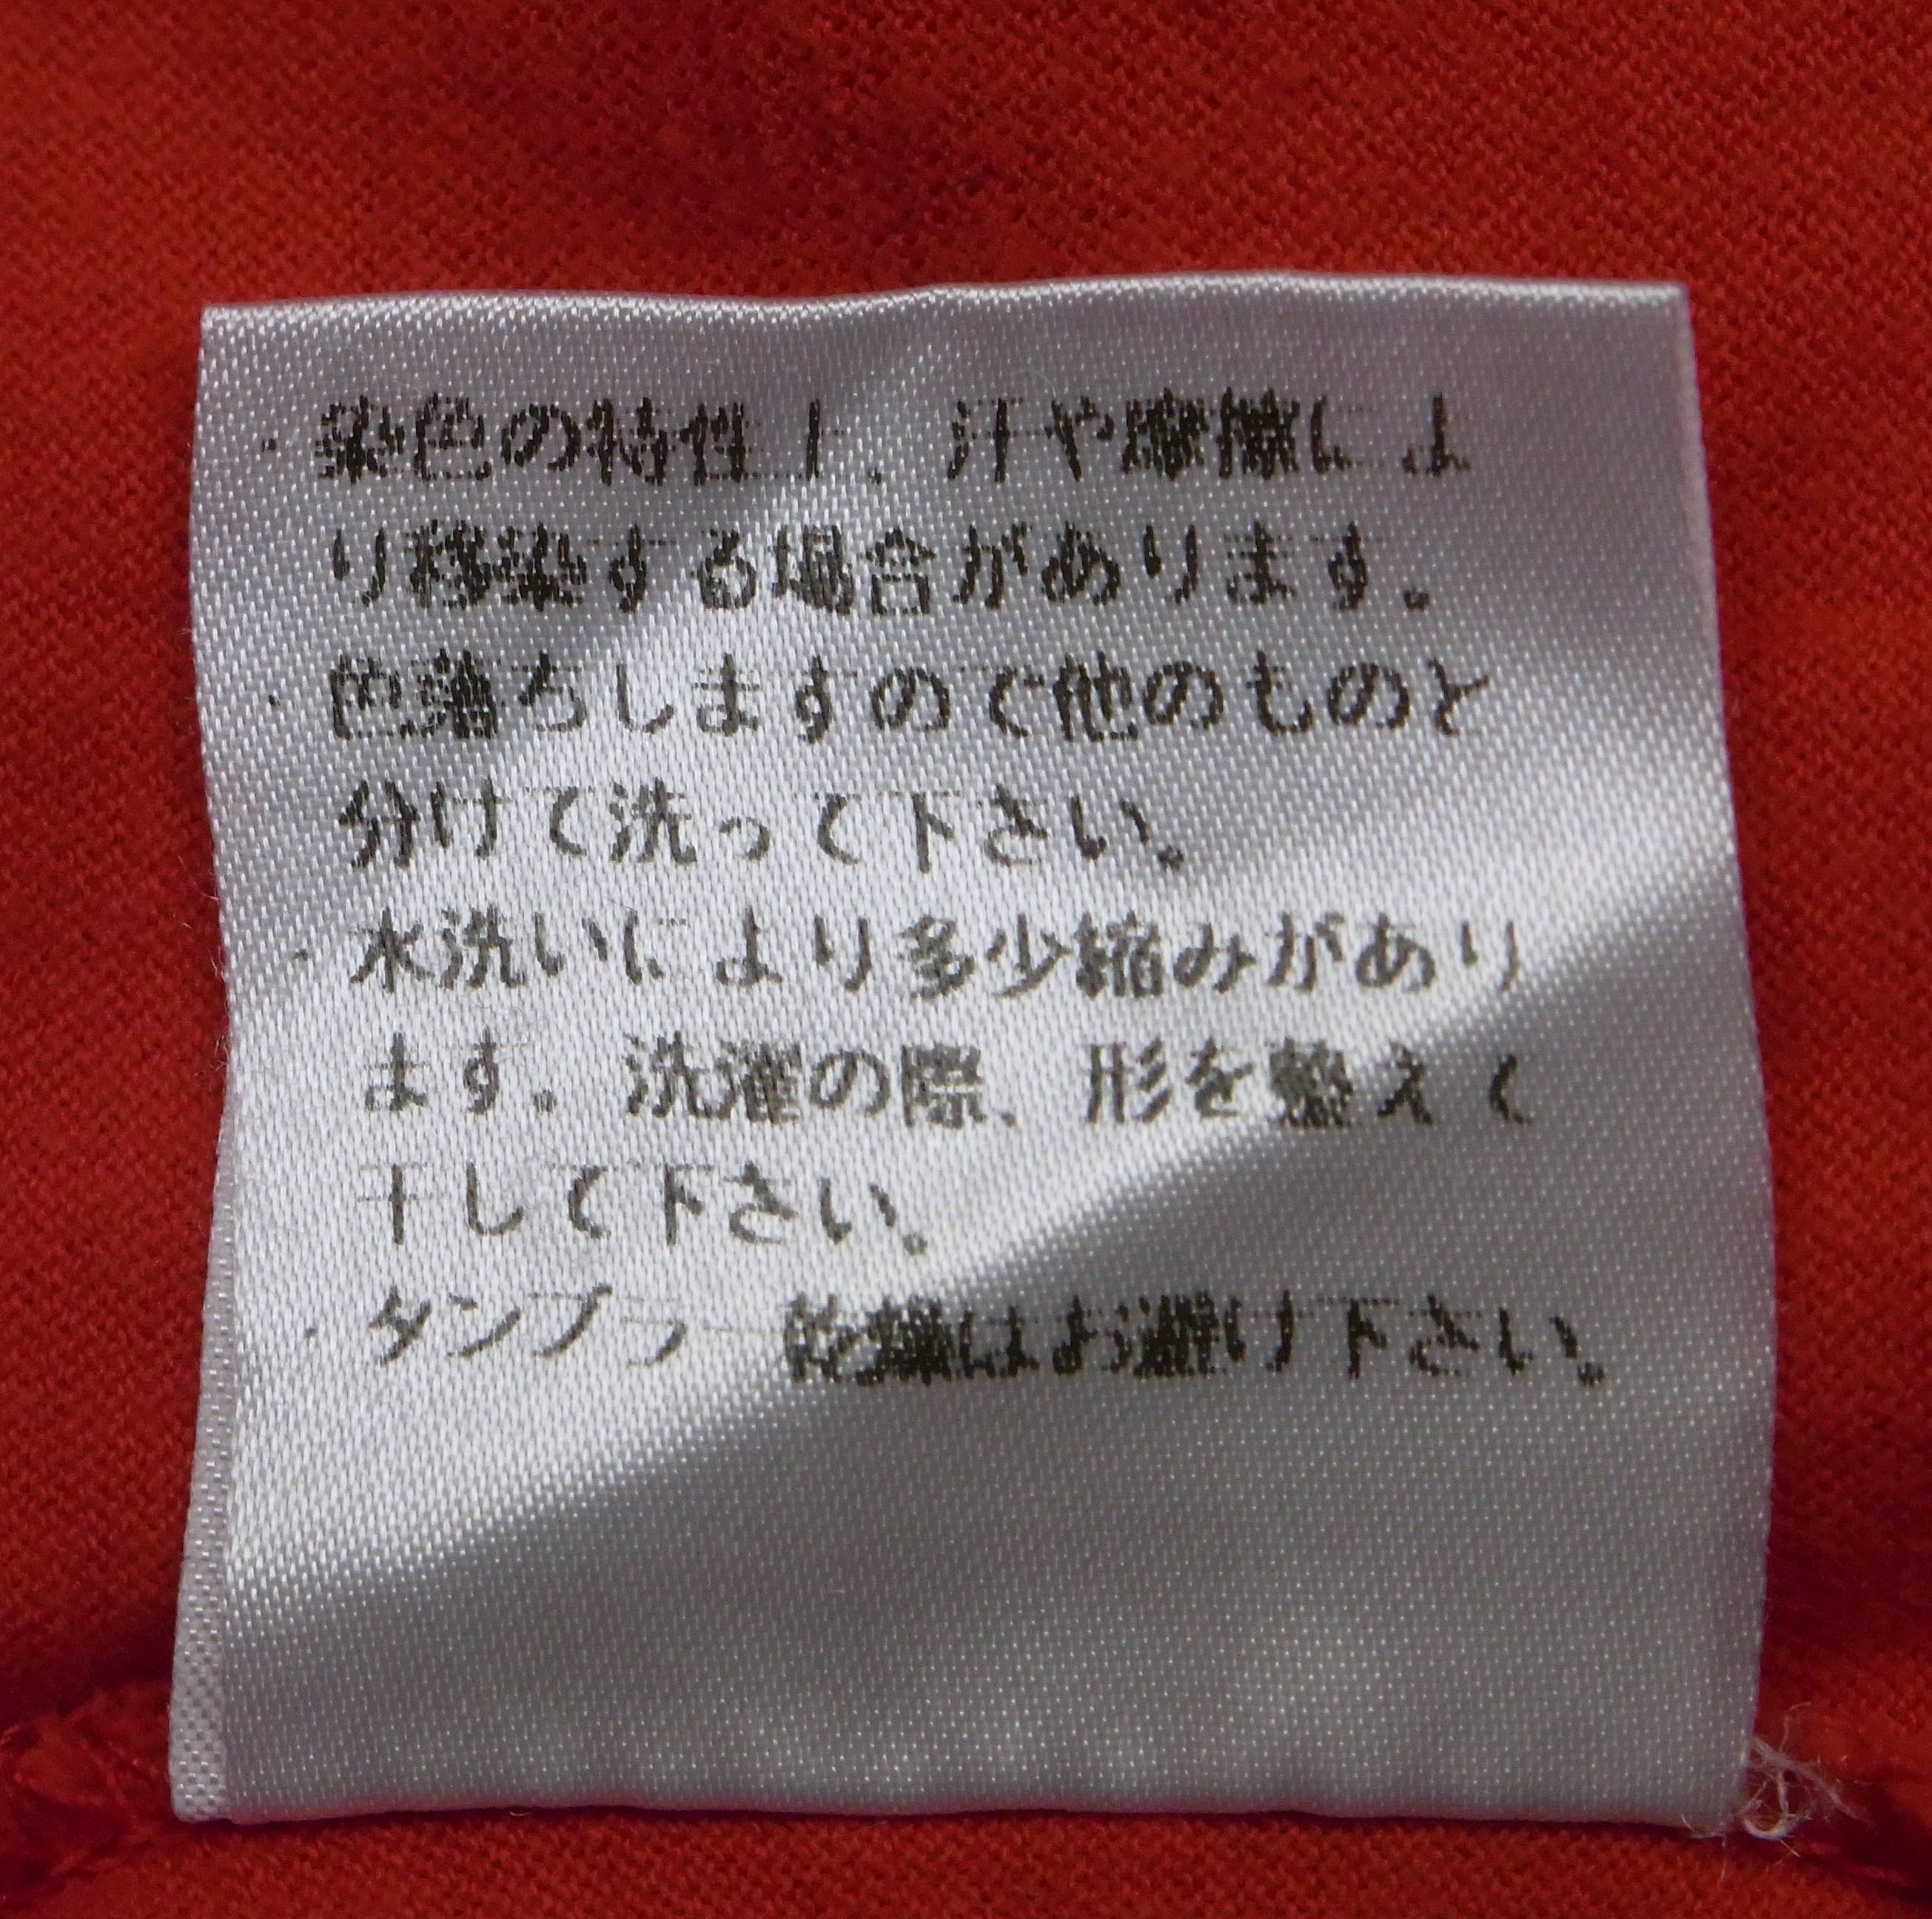 ・染色の特性上、汗や摩擦によ
り移染する場合があります。
・色落ちしますので他のものと
分けて洗って下さい。
・水洗いにより多少縮みがあり
ます。洗濯の際、形を整えて
干して下さい。
・タンブラー乾燥はお避け下さい。